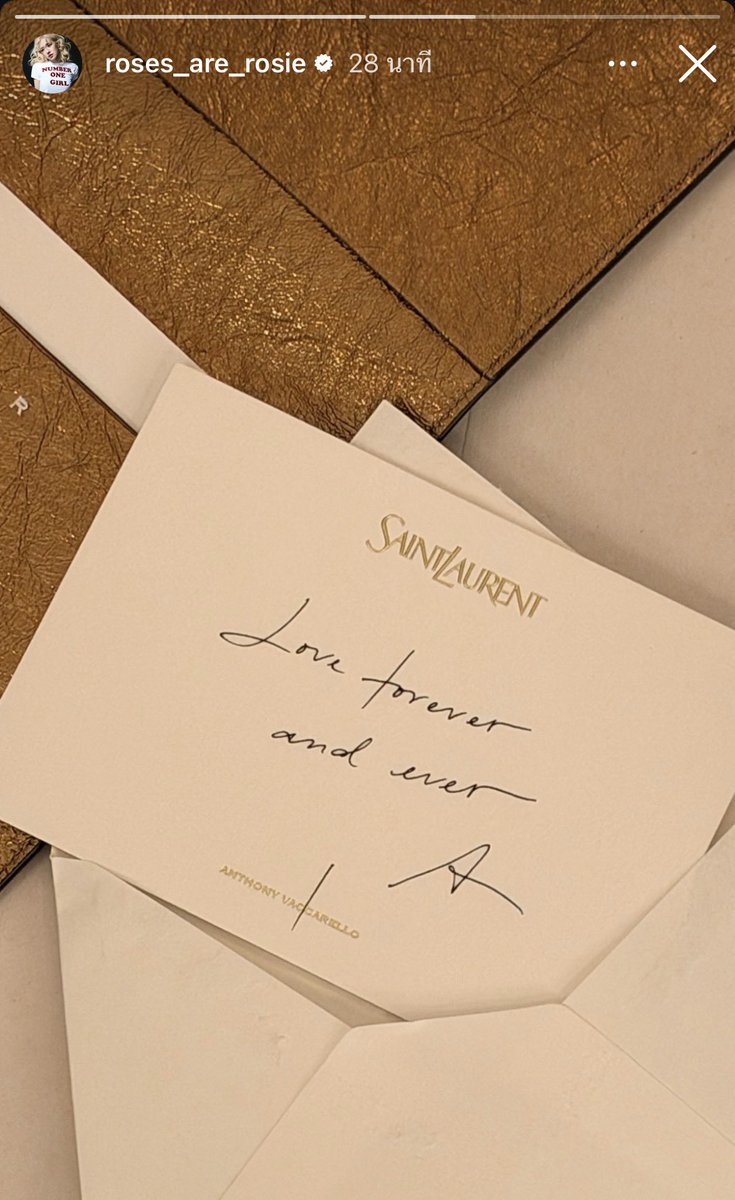 roses_are_rosie 28 นาที
NUMBER
ONE
GIRL
R
SAINT LAURENT
Love forever
and ever
A
ANTHONY VACCARELLO